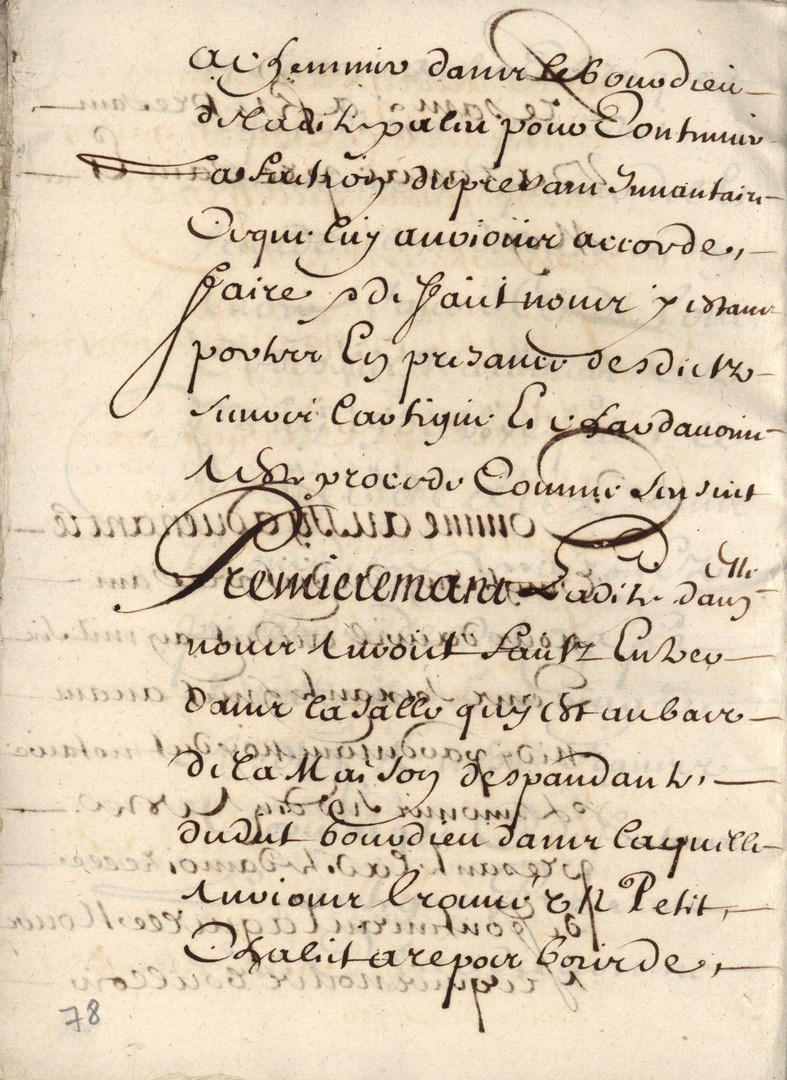 achemine dans le bourdieu
de ladite palue pour Continuer
La faction du presant Inventaire
Ce que luy aurions accorde,
faire & de fait nous y estans
portes En presance desdictz
sieurs Lartigue Et Chardavoine
A este procede Comme sensuit
Premieremant Ladite damlle
nous auroit faitz Entrer
dans la salle quy est au bas
de la Maison despandante
dudit bourdieu dans laquelle
Aurions trouve un Petit
Chalit a repos bois de
78